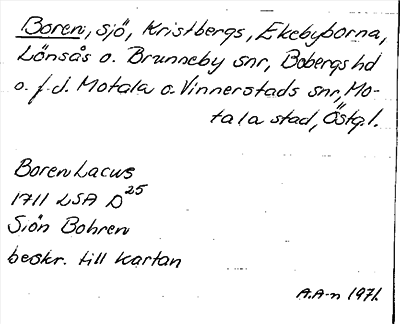 Boren, sjö, Kristbergs, Ekebyborna,
Lönsås o. Brunneby snr, Bobergs hd
o. f.d. Motala o. Vinnerstads snr, Mo-
tala stad, Östgl.
Boren Lacus
1711 LSA D 25
Siön Bohren
beskr. till kartan
A.A-n 1971.